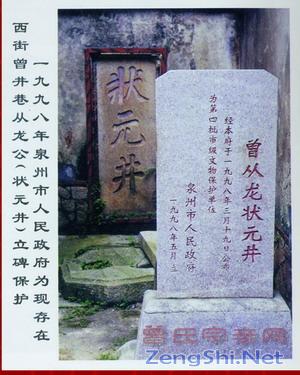 一九九八年泉州市人民政府为现存在
西街曾井巷从龙公（状元井）立碑保护
状元井
曾从龙状元井
经本府于一九九八年三月十九日公布
为第四批市级文物保护单位
泉州市人民政府
一九九八年五月立
曾氏宗亲网
ZengShi.Net